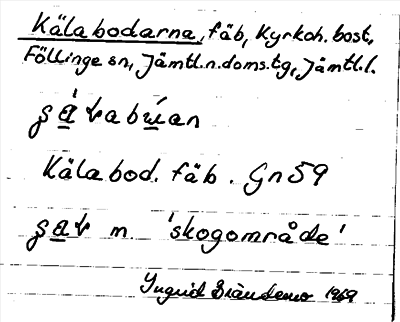 Kälabodarna, fäb, Kyrkoh. bost,
Föllinge sn, Jämtl.n.doms.tg, Jämtl.l.
Kälabod. fäb. Gn 59
m 'skogområde'
Ingrid Brändemo 1969